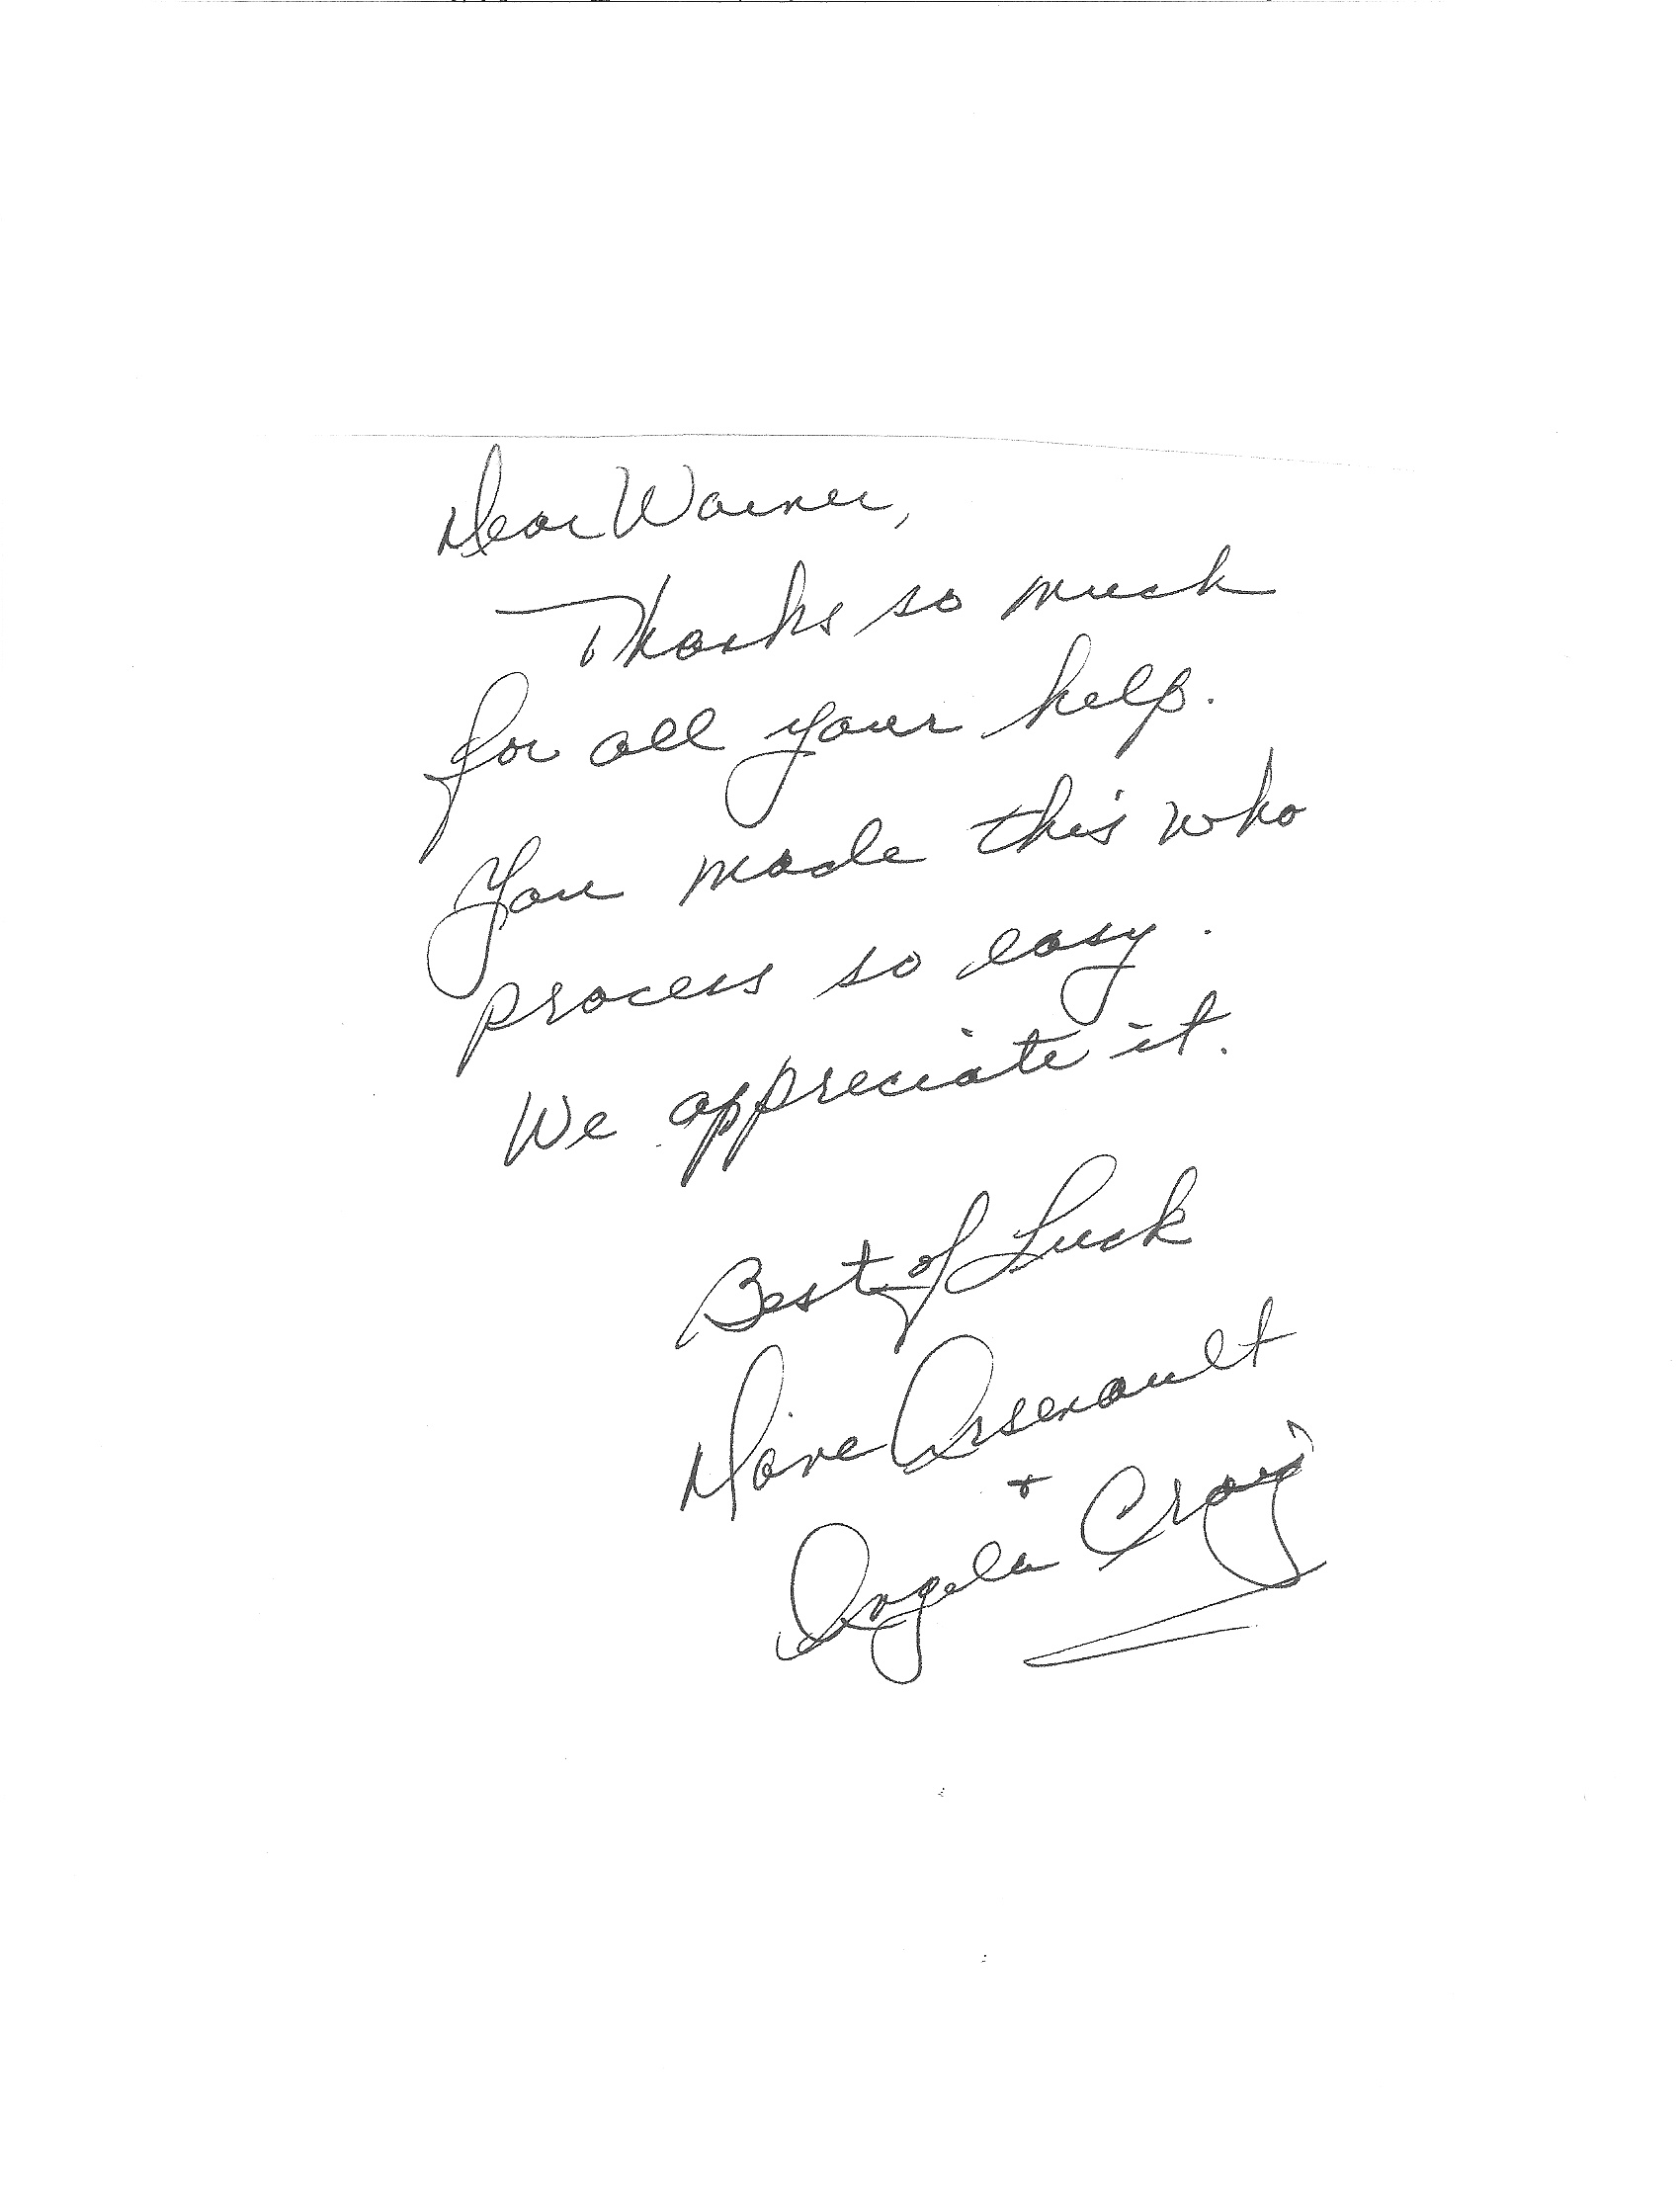 Dear Warner,
Thanks so much
for all your help.
You made this who
process so easy.
We appreciate it.
Best of Luck
Dave Arsenault
+
Angela Craig